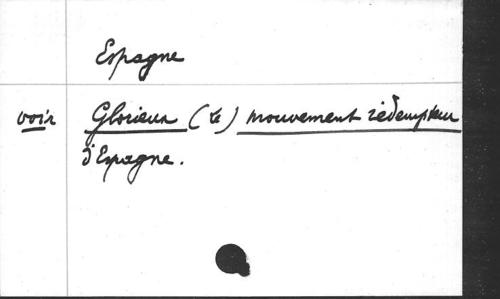 Espagne
voir Glorieux (Le) mouvement rédempteur
d'Espagne.